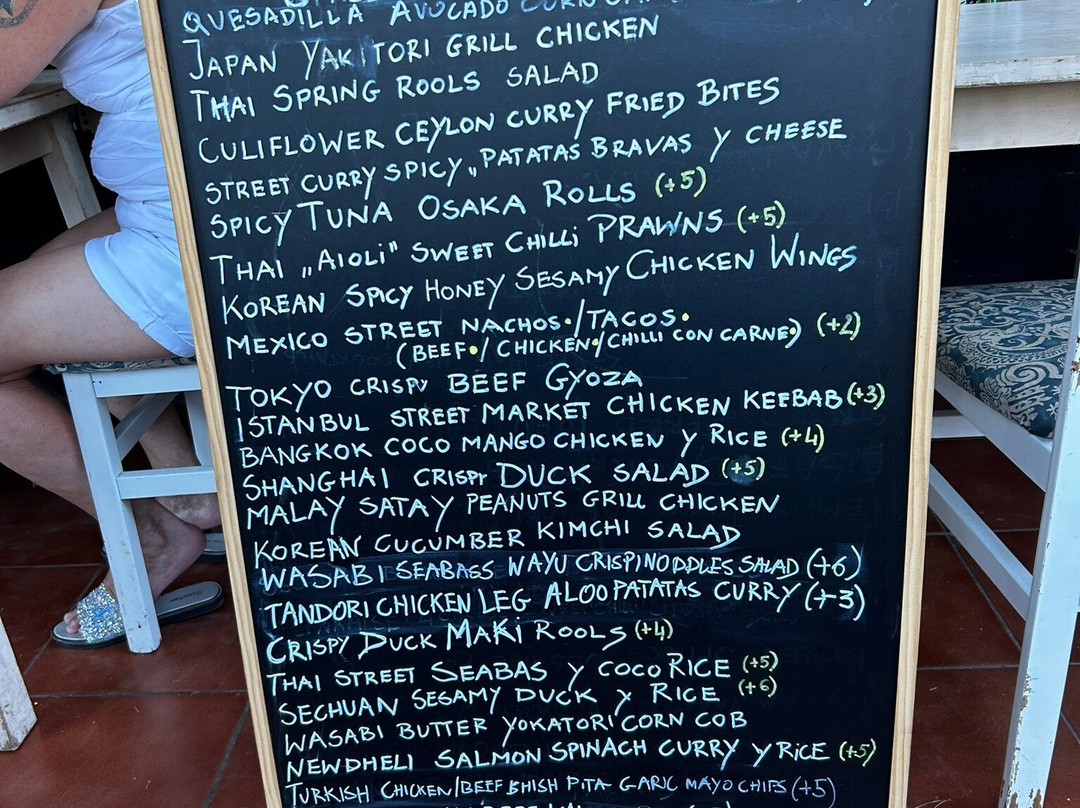 QUESADILLA AVOCADO
JAPAN YAKITORI GRILL CHICKEN
THAI SPRING ROOLS SALAD
CULIFLOWER CEYLON CURRY FRIED BITES
STREET CURRY SPICY „PATATAS BRAVAS Y CHEESE
SPICY TUNA OSAKA ROLLS (+5)
THAI „AIOLI" SWEET CHILLI PRAWNS (+5)
KOREAN SPICY HONEY SESAMY CHICKEN WINGS
MEXICO STREET NACHOS•/TACOS• (+2)
(BEEF•/CHICKEN•/CHILLI CON CARNE•)
TOKYO CRISPY BEEF GYOZA
ISTANBUL STREET MARKET CHICKEN KEEBAB (+3)
BANGKOK COCO MANGO CHICKEN Y RICE (+4)
SHANGHAI CRISPY DUCK SALAD (+5)
MALAY SATAY PEANUTS GRILL CHICKEN
KOREAN CUCUMBER KIMCHI SALAD
WASABI SEABASS WAYU CRISPI NODDLES SALAD (+6)
TANDORI CHICKEN LEG ALOO PATATAS CURRY (+3)
CRISPY DUCK MAKI ROOLS (+4)
THAI STREET SEABAS Y COCO RICE (+5)
SECHUAN SESAMY DUCK Y RICE (+6)
WASABI BUTTER YOKATORI CORN COB
NEWDHELI SALMON SPINACH CURRY Y RICE (+5)
TURKISH CHICKEN/BEEF SHISH PITA GARIC MAYO CHIPS (+5)